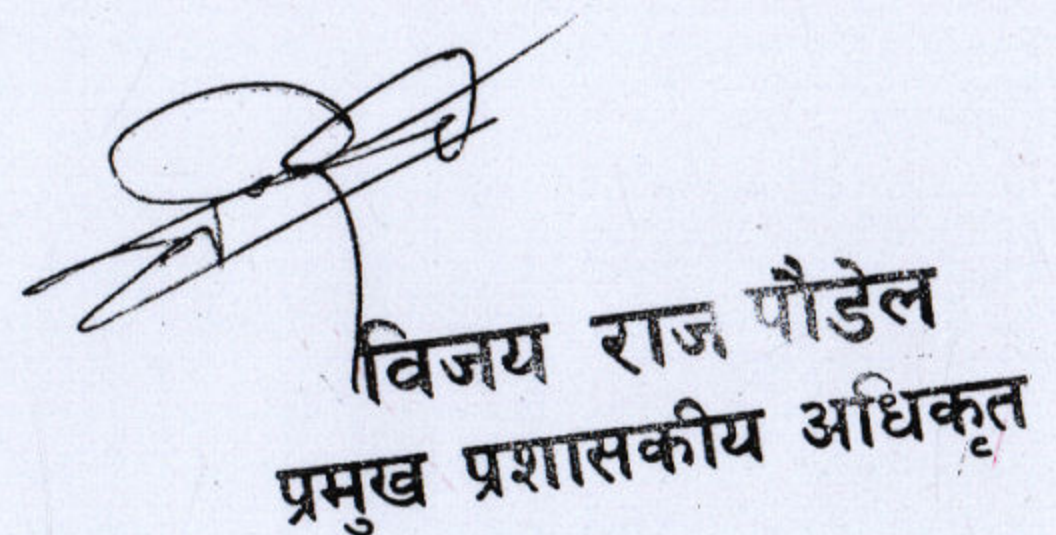 विजय राज पौडेल
प्रमुख प्रशासकीय अधिकृत